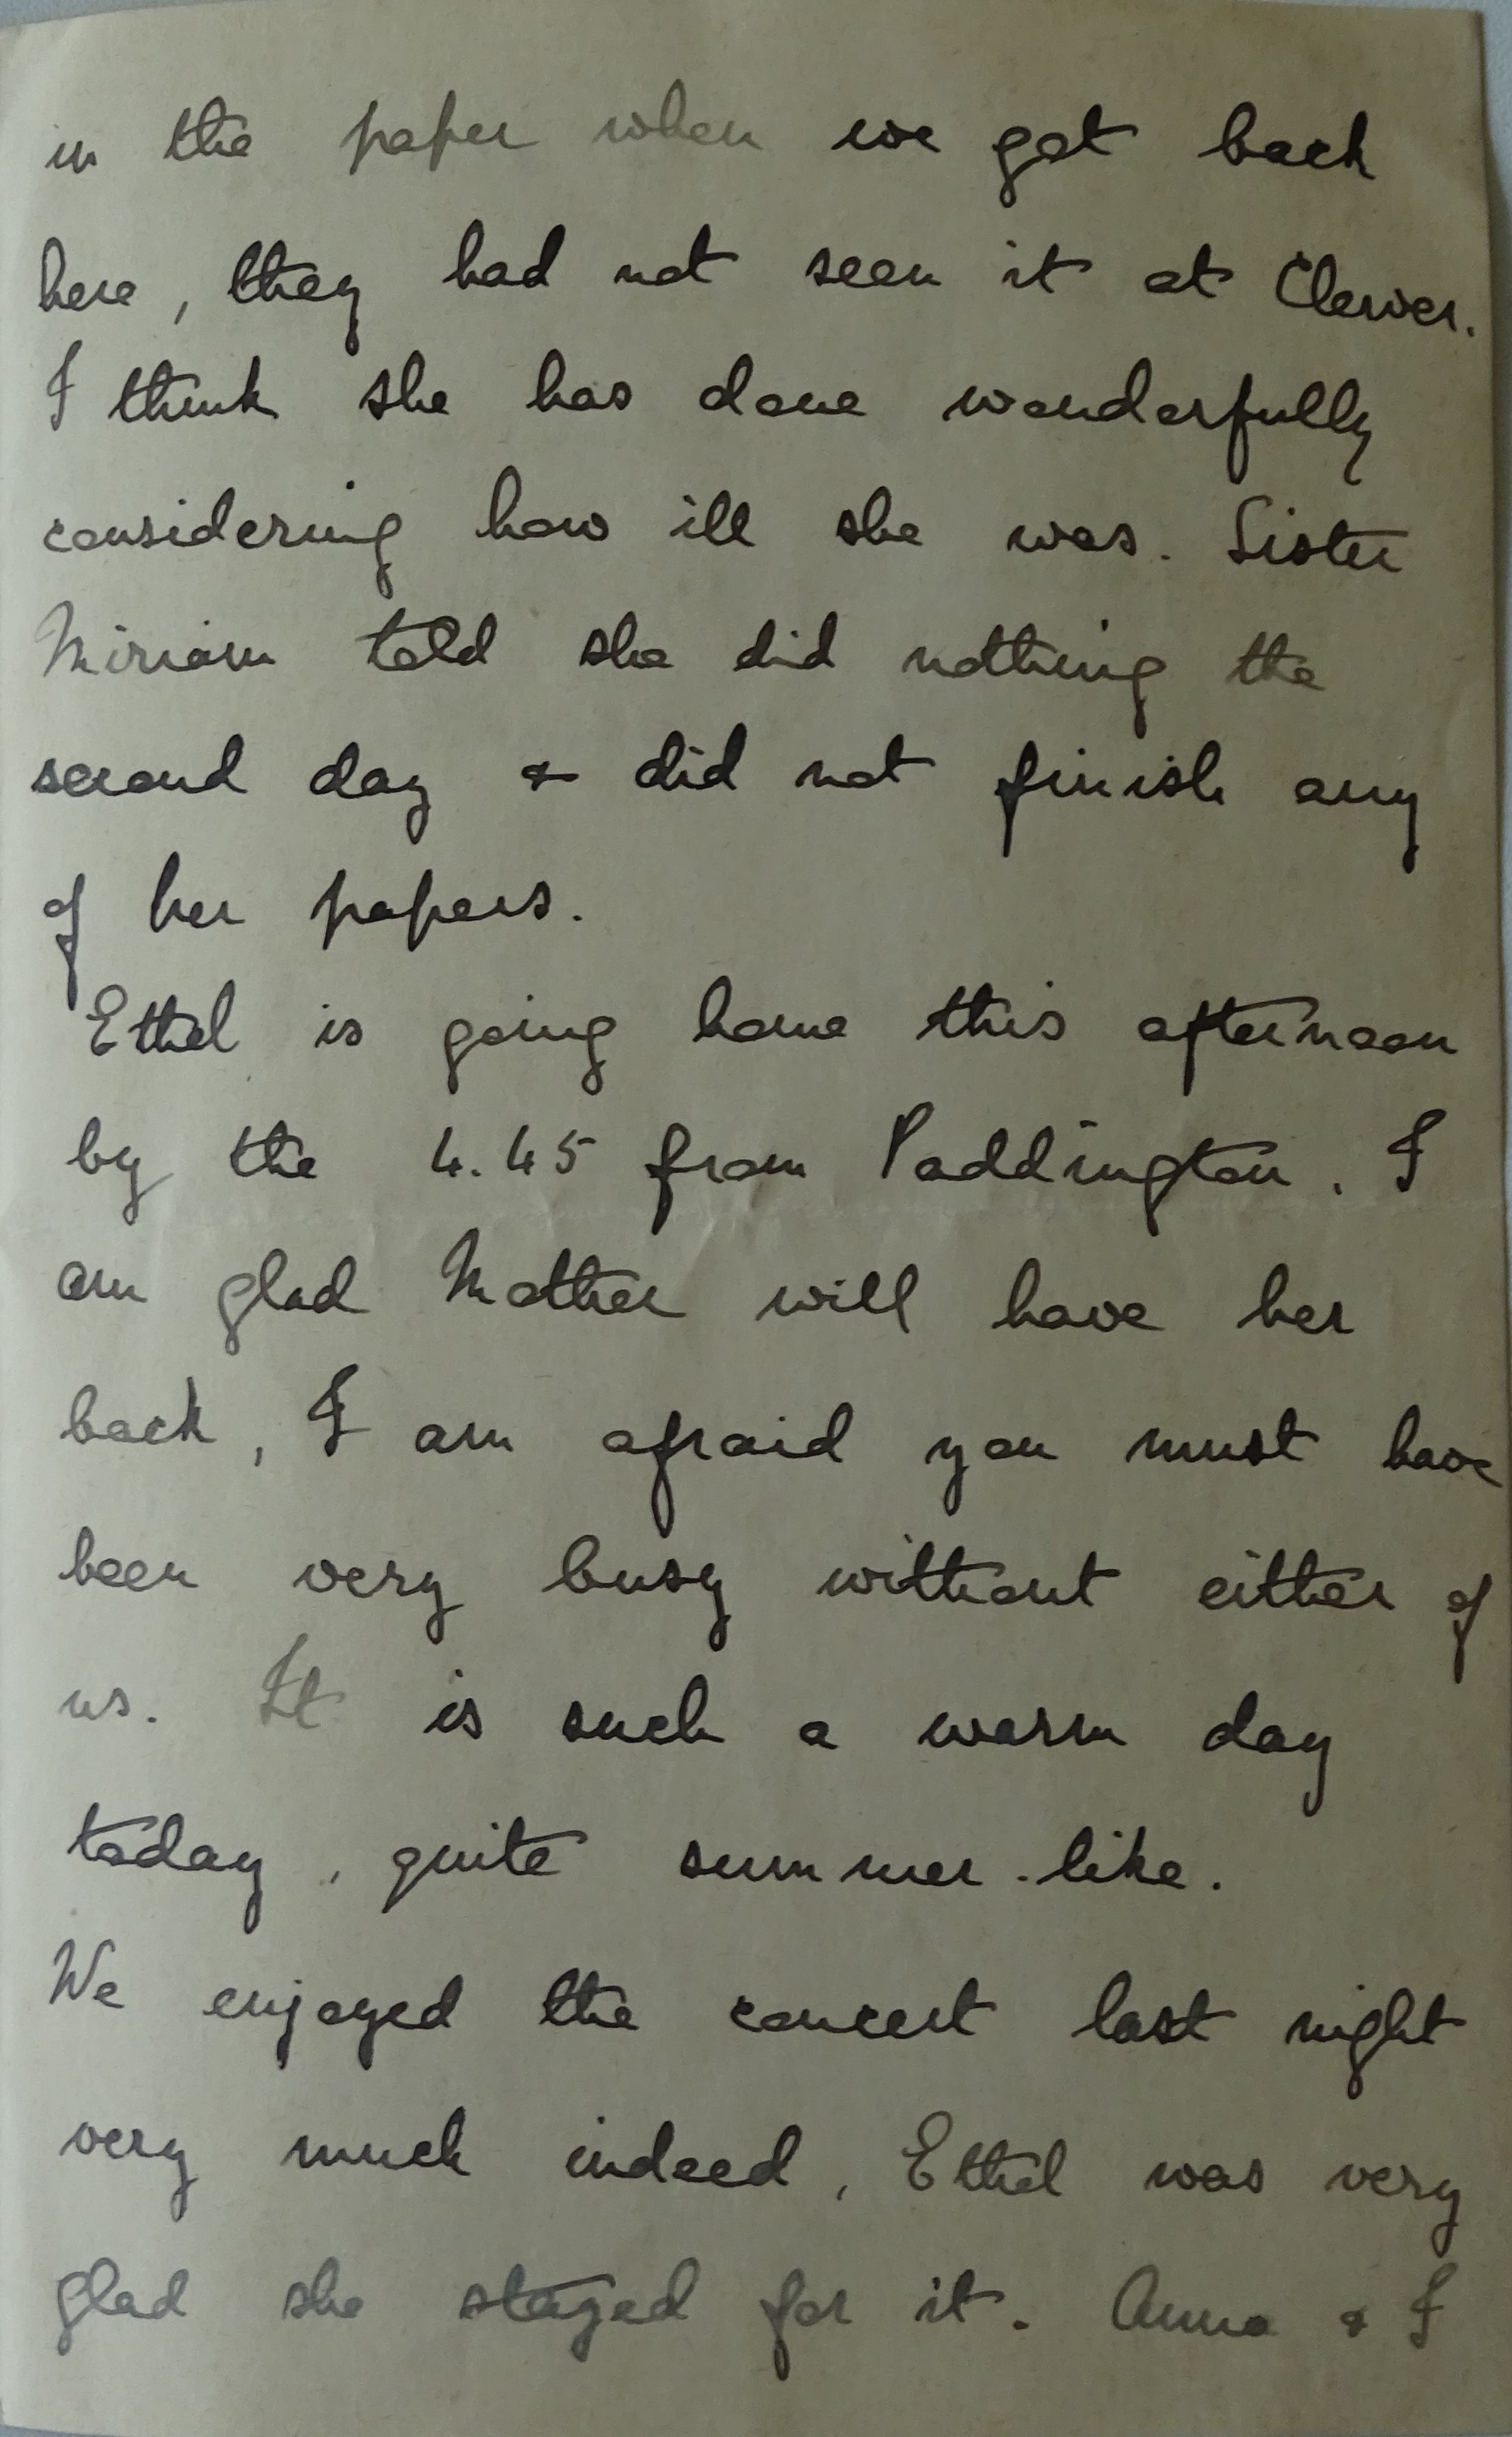 in the paper when we got back
here, they had not seen it at Clewer.
I think she has done wonderfully
considering how ill she was. Sister
Miriam told she did nothing the
second day & did not finish any
of her papers.
Ethel is going home this afternoon
by the 4.45 from Paddington. I
am glad Mother will have her
back, I am afraid you must have
been very busy without either of
us. It is such a warm day
today, quite summer-like.
We enjoyed the concert last night
very much indeed, Ethel was very
glad she stayed for it. Anna & I